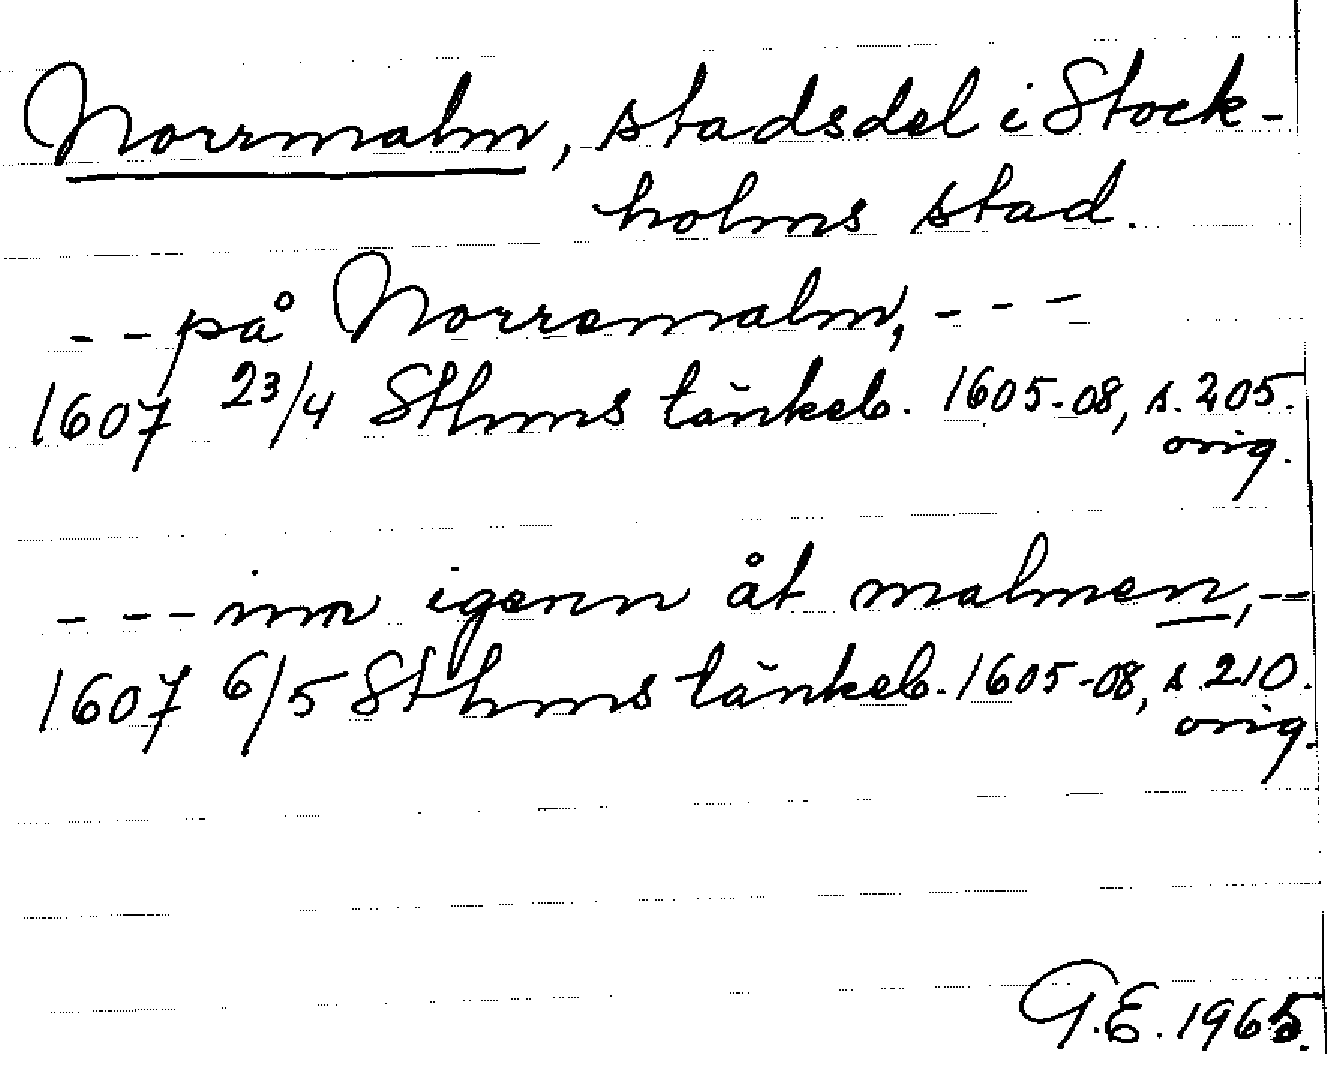 Norrmalm, stadsdel i Stock-
holms stad.
- - på Norremalm, - - -
1607 23/4 Sthms tänkeb. 1605-08, s. 205.
orig.
- - - inn igenn åt malmen, - -
1607 6/5 Sthms tänkeb. 1605-08, s. 210.
orig.
G.E. 1965.